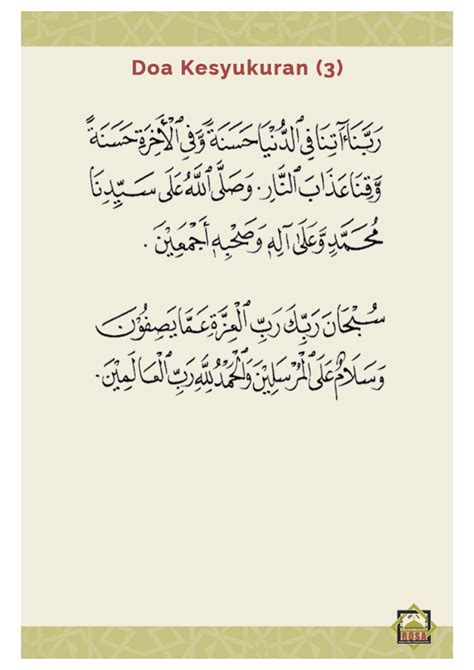 Doa Kesyukuran (3)
رَبَّنَا آتِنَا فِي الدُّنْيَا حَسَنَةً وَّفِي الْأَخِرَةِ حَسَنَةً
وَّقِنَا عَذَابَ النَّارِ. وَصَلَّى اللَّهُ عَلَى سَيِّدِنَا
مُحَمَّدٍ وَّعَلَى آلِهِ وَصَحْبِهِ أَجْمَعِيْنَ.
سُبْحَانَ رَبِّكَ رَبِّ الْعِزَّةِ عَمَّا يَصِفُوْنَ
وَسَلَامٌ عَلَى الْمُرْسَلِيْنَ وَالْحَمْدُ لِلَّهِ رَبِّ الْعَالَمِيْنَ.
ROSA